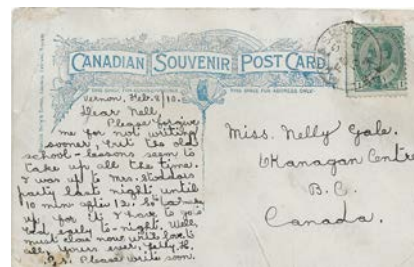 CANADIAN SOUVENIR POST CARD
THIS SPACE FOR ADDRESS ONLY
Vernon, Feb. 8/10.
Dear Nell,
Please forgive
me for not writing
sooner, but the old
school-lessons seem to
take up all the time.
I was up to Mrs. Stoddars
party last night until
10 min after 12.
up, for it I have to go to
bed early to-night. Well,
must close now with love to
all, yours ever,
P.S. Please write soon.
Miss. Nelly Gale.
Okanagan Centre
B.C.
Canada.